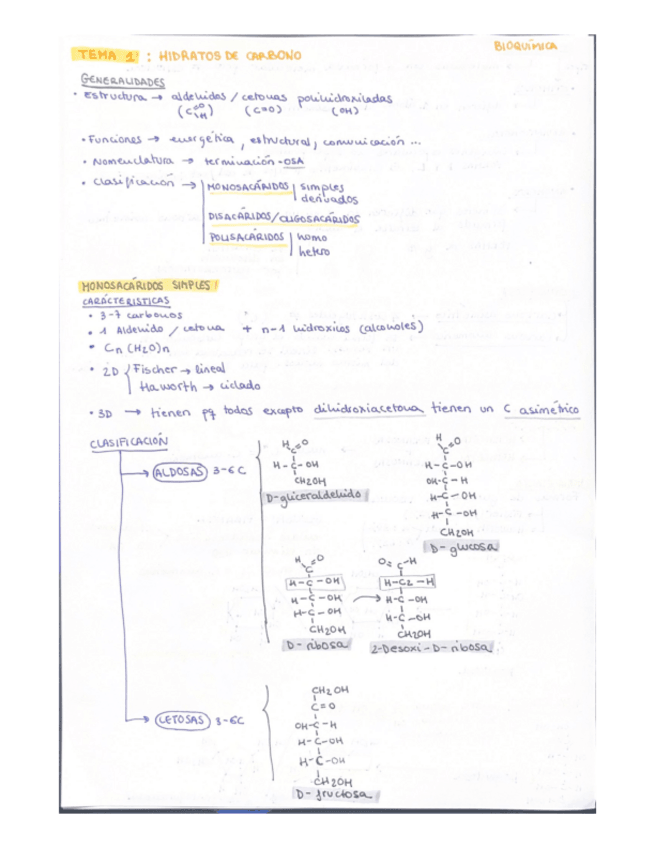 BIOQUÍMICA
TEMA 1 : HIDRATOS DE CARBONO
GENERALIDADES
• Estructura → aldehidos / cetonas polihidroxiladas
(C=O H) (C=O) (OH)
• Funciones → energética, estructural, comunicación ...
• Nomenclatura → terminación -OSA
• Clasificación → MONOSACÁRIDOS | simples
derivados
DISACÁRIDOS/OLIGOSACÁRIDOS
POLISACÁRIDOS | homo
hetero
MONOSACÁRIDOS SIMPLES/
CARÁCTERISTICAS
• 3-7 carbonos
• 1 Aldehido / cetona + n-1 hidroxilos (alcoholes)
• Cn (H2O)n
• 2D { Fischer → lineal
Haworth → ciclado
• 3D → tienen pq todos excepto dihidroxiacetona tienen un C asimétrico
CLASIFICACIÓN
ALDOSAS 3-6C
H C=O
H-C-OH
CH2OH
D-gliceraldehido
H C=O
H-C-OH
OH-C-H
H-C-OH
H-C-OH
CH2OH
D-glucosa
H C=O
H-C-OH
H-C-OH
H-C-OH
CH2OH
D-ribosa
O=C-H
H-C2-H
H-C-OH
H-C-OH
CH2OH
2-Desoxi-D-ribosa
CETOSAS 3-6C
CH2OH
C=O
OH-C-H
H-C-OH
H-C-OH
CH2OH
D-fructosa